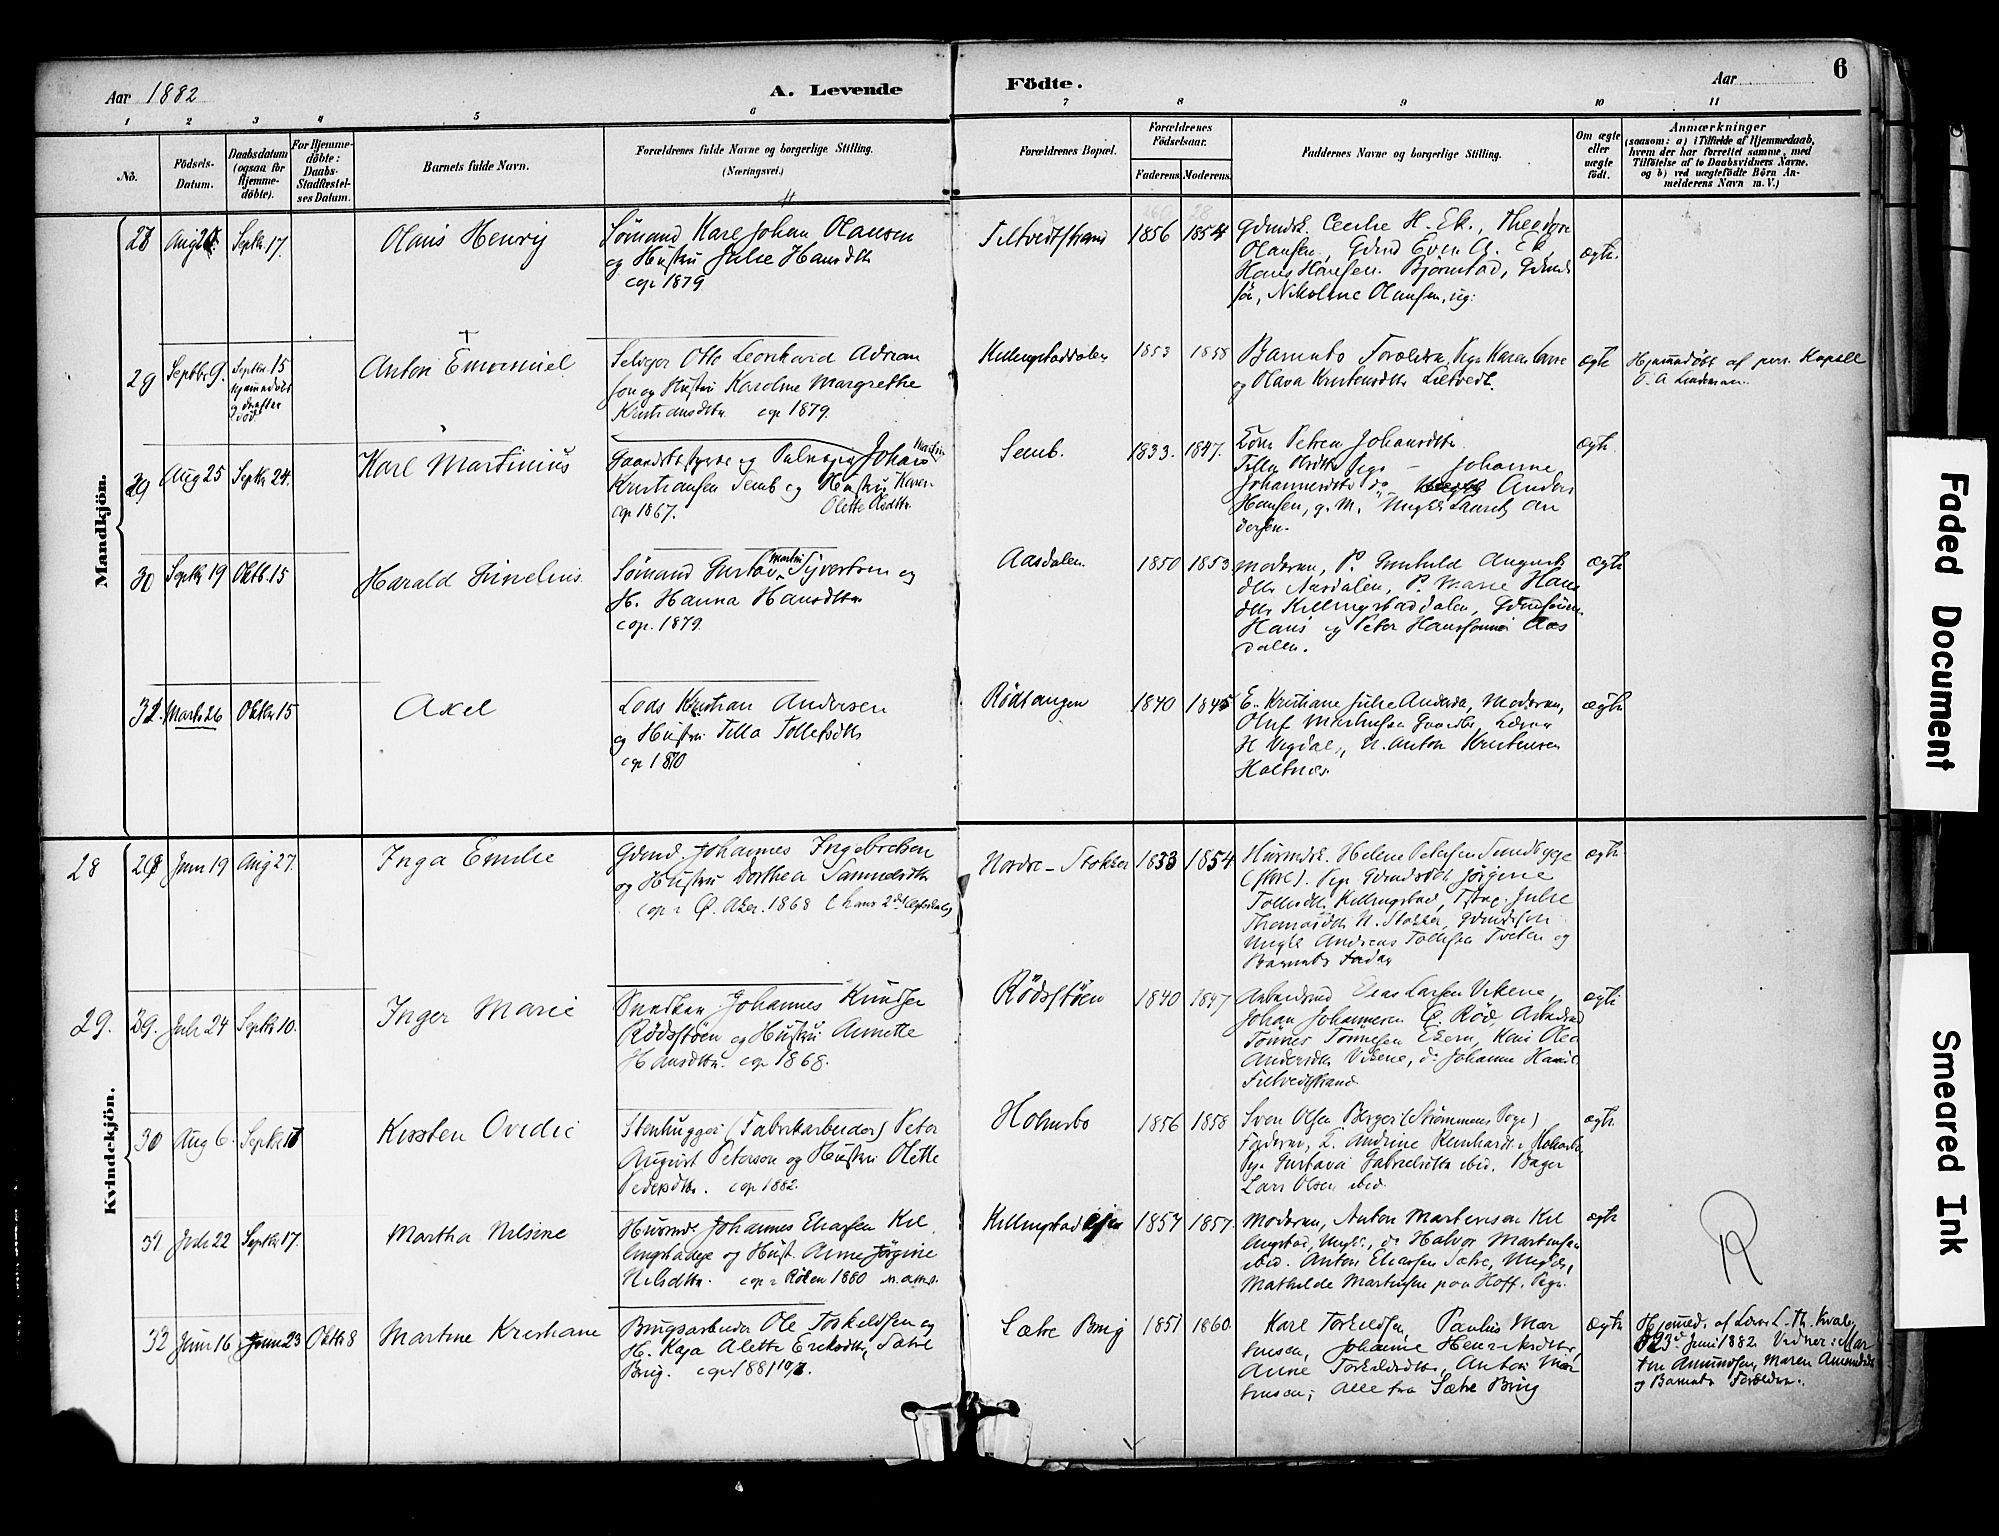 Aar 1882
A. Levende
Födte.
Aar
6
1 2 3 4 5 6 7 8 9 10 11
No.
Födsels-
Datum.
Daabsdatum
(ogsaa for
Hjemme-
döbte).
For Hjemme-
döbte:
Daabs-
Stadfæstel-
ses Datum.
Barnets fulde Navn.
Forældrenes fulde Navne og borgerlige Stilling.
(Næringsvei.)
Forældrenes Bopæl.
Forældrenes
Födselsaar.
Faderens Moderens.
Faddernes Navne og borgerlige Stilling.
Om ægte
eller
uægte
født.
Anmærkninger
(saasom: a) i Tilfælde af Hjemmedaab,
hvem der har forrettet samme, med
Tilföielse af to Daabsvidners Navne.
og b) ved uægtefödte Börn An-
melderens Navn m. V.)
Mandkjön.
28 Septbr 17.
Olaus Henry
Sømand Karl Johan Olausen
og Hustru Julie Hansdttr
cop 1879
Filtvedtstrand
1856 1854
Gdmdsk. Cecilie H. Ek., Theodor
Olausen, Gdmd Even A. Ek
Hans Hansen Bjørnstad, Gdmds
før, Nikoline Olausen, ug:
ægte.
29 Septbr 9. Septbr. 15
hjemmedøbt
og derefter
død.
Anton Emanuel
Selveier Otto Leonhard Adrian
sen og Hustru Karoline Margrethe
Kristiansdttr cop 1879.
Killingstaddalen
1853 1858
Barnets Forældre, Pige Karen
og Olava Kristensdttr Sætvedt.
ægte
Hjemmedøbt af pers. Kapell
O. A. Lindeman.
29 Aug 25 Septbr 24.
Karl Martinius
Johan Martin
Kristiansen Semb og Hustru Karen
cop 1867. Olette Olsdttr.
Semb.
1833. 1847.
Petrea Johansdttr
Pige – Johanne
Johannesdttr do Anders
Hansen, g. M. Ungkl Laurits An
dersen.
ægte.
30 Septbr 19 Oktb. 15
Harald Sinelius
Sømand Gustav Martin Syvertsen og
H. Hanna Hansdttr
cop. 1879.
Aasdalen.
1850 1853
Moderen, P. Gunhild August
dttr Aasdalen, P. Marie Hans
dttr Killingstaddalen, Gdmdsønner
Hans og Peter Hanssønner Aas
dalen.
ægte
31. Marts 26 Oktbr 15
Axel
Lods Kristian Andersen
og Hustru Tilla Tollefsdttr
cop 1870
Rødtangen
1840 1845
E. Kristiane Julie Andersd., Moderen,
Oluf Mathisen Lærer
H Vegdal, U. Anton Kristensen
Holtnæs.
ægte
Kvindekjön.
28 Juni 19 Aug 27.
Inga Emilie
Gdmd. Johannes Ingebretsen
og Hustru Dorthea Samuelsdttr
cop i Ø. Aker. 1868 (hans 2det Ægteskab)
Nordre-Stokker
1833 1854
Husmdsk. Helene Petersen Sundbygge
Pige Gdmdsdtt Jørgine
Tollefsdttr Killingstad, Julie
Thomasdttr N. Stokker, Gdmdssøn
Ungkl Andreas Tollefsen Tveten og
Barnets Fader
ægte
29. 29. Juli 24 Septbr 10.
Inger Marie
Snedker Johannes Knudsen
Rødsstøen og Hustru Annette
Hansdttr. cop 1868.
Rødsstøen
1840 1847
Arbeidsmd Elias Larsen Vikene,
Johan Johannesen Ø. Rød, Arbeidsmd
Tønnes Tønnesen Ekern, Kone Olea
Andersdttr Vikene, do Johanne Hansd.
Filtvedtstrand.
ægte
30 Aug 6. Septbr 10
Kirsten Ovidie
Stenhugger (Fabrikarbeider) Peter
August Peterson og Hustru Olette
Pedersdttr. cop 1882.
Holmsbo
1856 1858
Sven Olsen Berger (Strømmens Prgj.)
Faderen, E. Andrine Reinhardt i Holmsbo
Pige Gustava Gabrielsdttr ibid. Bager
Lars Olsen ibid.
ægte
31 Juli 22 Septbr 17.
Martha Nilsine
Husmd. Johannes Eliassen Kil
lingstadeje og Hust. Anne Jørgine
Nilsdttr. cop i Røken 1880
Killingstadejen
1857 1857.
Moderen, Anton Martinsen Kil
lingstad, Ungkl., do Halvor Martinsen
ibid. Anton Eliassen Sætre, Ungkl.,
Mathilde Martinsen paa Hoff. Pige.
ægte
R
32 Juni 16 Juni 23 Oktbr 8
Martine Kristiane
Brugsarbeider Ole Torkildsen og
H. Kaja Alette Eriksdttr, Sætre
Brug.
Sætre Brug
1851 1860
Karl Torkildsen, Paulus Mar
tinsen, Johanne Henriksdttr,
Anne Torkildsdttr, Anton Mar
tinsen; Alle fra Sætre Brug
ægte
Hjemmed. af Lærer L. Th. Kvale,
23de Juni 1882. Vidner: Mar
tin Amundsen, Maren Amundsd.
og Barnets Forældre.
Faded Document
Smeared Ink